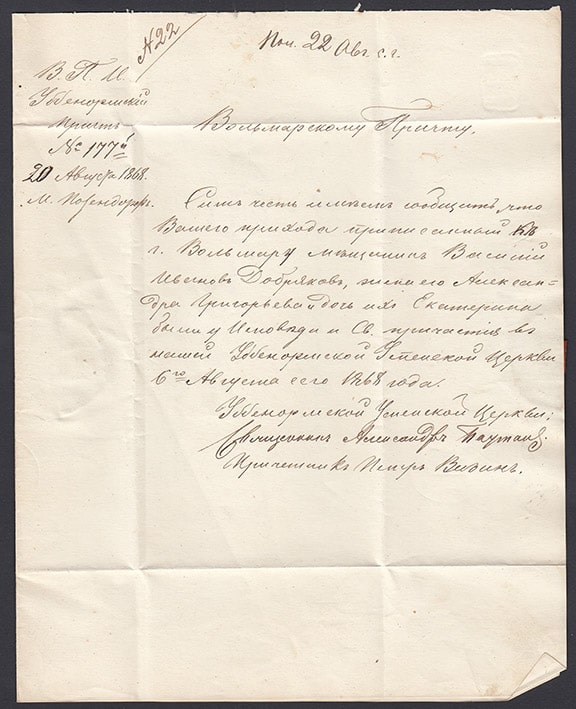 N 22
Пол. 22 Авг. с. г.
В. П. И.
Уббенормскій
Причтъ
№ 177й
20 Августа 1868.
М. Позендорфъ.
Вольмарскому Причту.
Симъ честь имѣемъ сообщить, что
Вашего прихода приписанный къ
г. Вольмару мѣщанинъ Василій
Ивановъ Добряковъ, жена его Алексан-
дра Григорьева и дочь ихъ Екатерина
были у Исповѣди и Св. причастія въ
нашей Уббенормской Успенской Церкви
6го Августа сего 1868 года.
Уббенормской Успенской Церкви:
Священникъ Александръ
Причетникъ Петръ Визинъ.